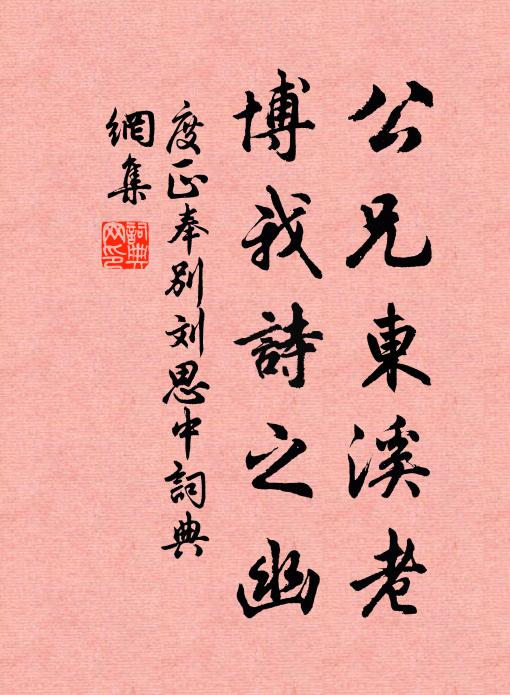 公兄東溪老
博我詩之幽
度正奉别刘思中詞典
網集
詞典
网印